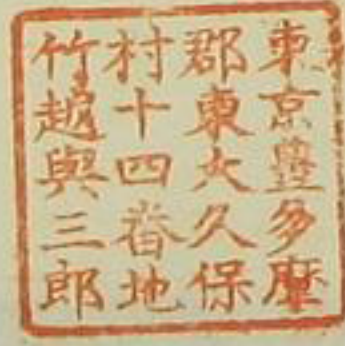 東京豊多摩
郡東大久保
村十四番地
竹越與三郎